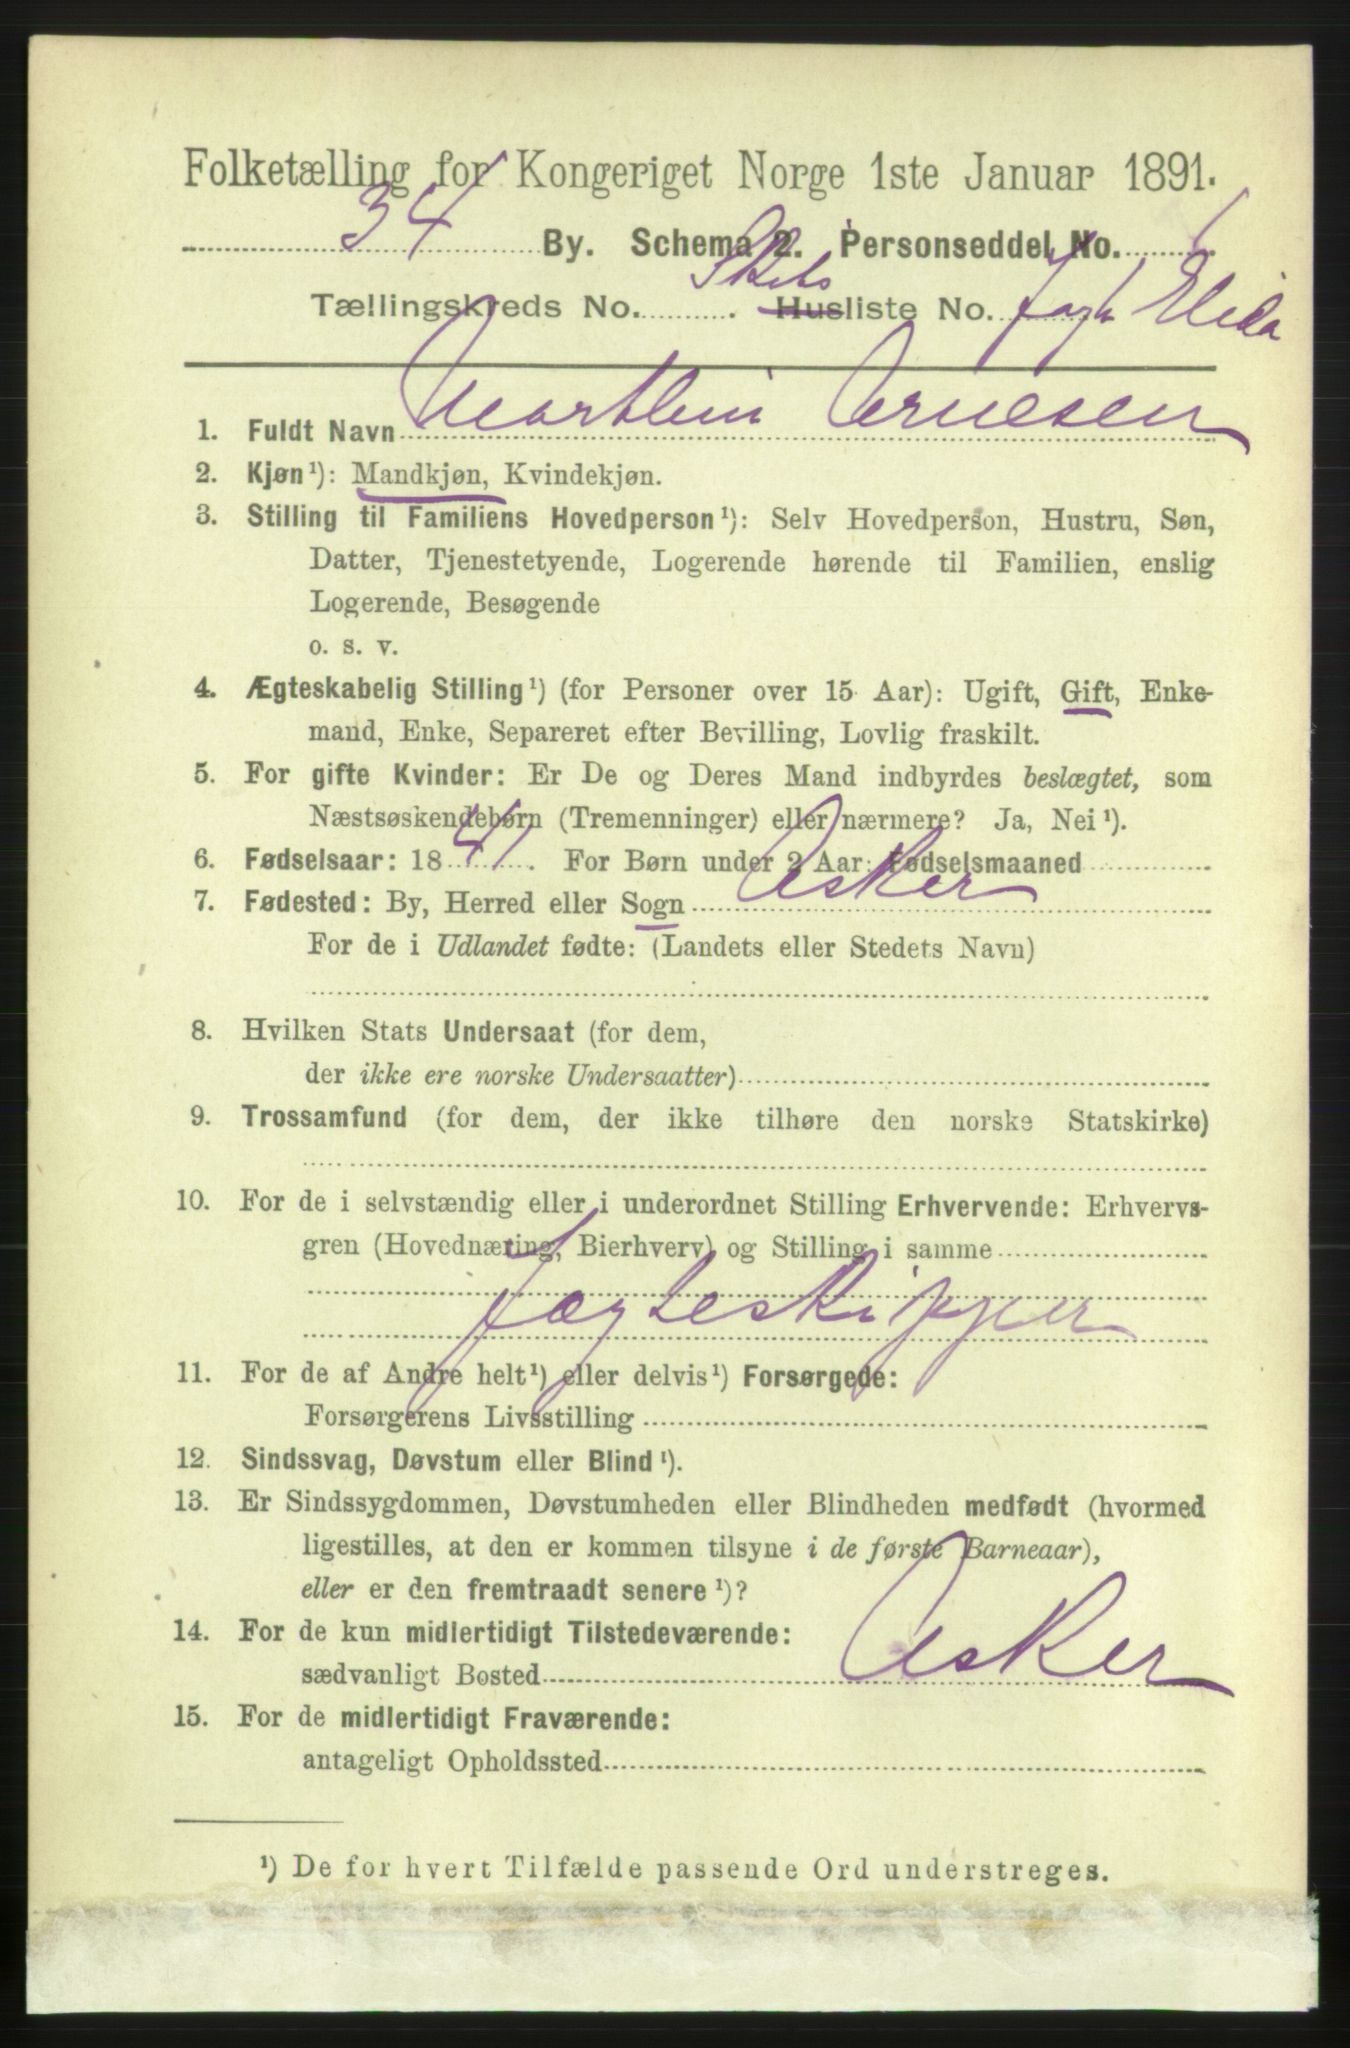 Folketælling for Kongeriget Norge 1ste Januar 1891.
34 By. Schema 2. Personseddel No. 1
Tællingskreds No. . Skibs Husliste No. Jagt Elida
1. Fuldt Navn Marthin Arnesen
2. Kjøn ¹): Mandkjøn, Kvindekjøn.
3. Stilling til Familiens Hovedperson ¹): Selv Hovedperson, Hustru, Søn,
Datter, Tjenestetyende, Logerende hørende til Familien, enslig
Logerende, Besøgende
o. s. v.
4. Ægteskabelig Stilling ¹) (for Personer over 15 Aar): Ugift, Gift, Enke-
mand, Enke, Separeret efter Bevilling, Lovlig fraskilt.
5. For gifte Kvinder: Er De og Deres Mand indbyrdes beslægtet, som
Næstsøskendebørn (Tremenninger) eller nærmere? Ja, Nei ¹).
6. Fødselsaar: 1841. For Børn under 2 Aar: Fødselsmaaned
7. Fødested: By, Herred eller Sogn Asker
For de i Udlandet fødte: (Landets eller Stedets Navn)
8. Hvilken Stats Undersaat (for dem,
der ikke ere norske Undersaatter)
9. Trossamfund (for dem, der ikke tilhøre den norske Statskirke)
10. For de i selvstændig eller i underordnet Stilling Erhvervende: Erhvervs-
gren (Hovednæring, Bierhverv) og Stilling i samme
Jagteskipper
11. For de af Andre helt ¹) eller delvis ¹) Forsørgede:
Forsørgerens Livsstilling
12. Sindssvag, Døvstum eller Blind ¹).
13. Er Sindssygdommen, Døvstumheden eller Blindheden medfødt (hvormed
ligestilles, at den er kommen tilsyne i de første Barneaar),
eller er den fremtraadt senere ¹)?
14. For de kun midlertidigt Tilstedeværende:
sædvanligt Bosted Asker
15. For de midlertidigt Fraværende:
antageligt Opholdssted
¹) De for hvert Tilfælde passende Ord understreges.